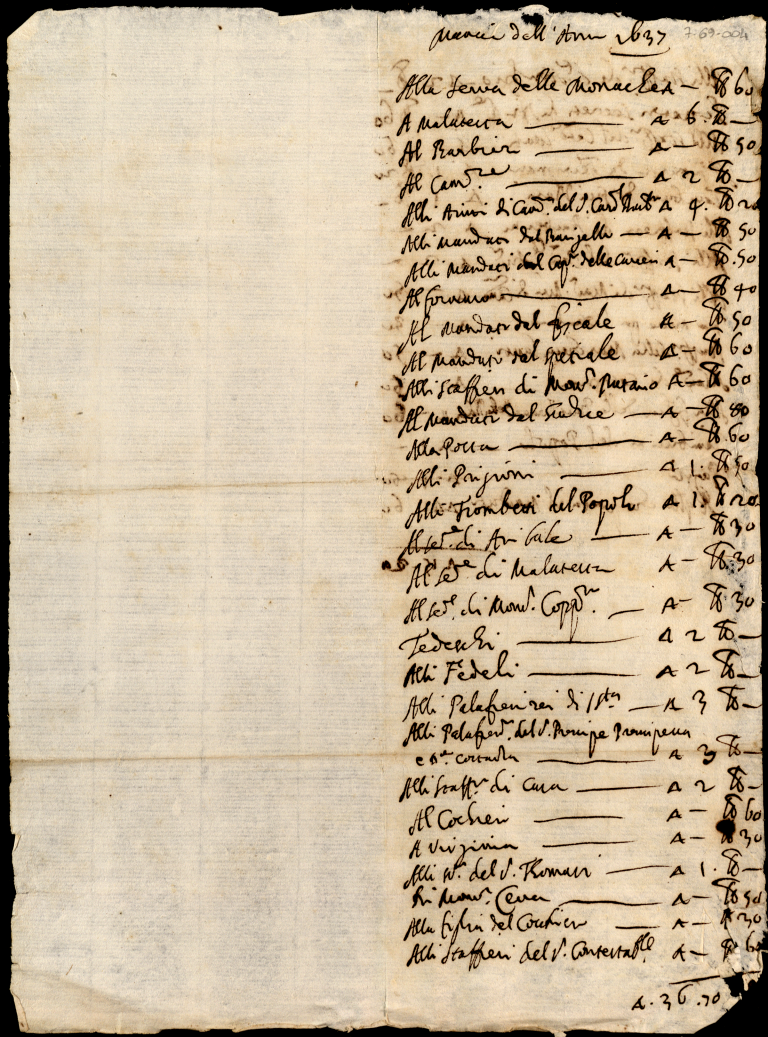 Mancie dell'Anno 1637
7-69-004
Alla serva delle Monache A — 60
A Malatesta — A 6. —
Al Barbiere — A — 50
Al Cam.re — A 2 —
Alli di Cam.a del S. Card.l A 4. 20
Alli Mandati del Barigello — A — 50
Alli Mandati del Cap. delle Carceri A — 50
Al fornaro — A — 40
Al Mandati del fiscale A — 50
Al Mandati del A — 60
Alli Staffieri di Mons. A — 60
Al Mandati del Giudice — A — 80
Alla Posta — A — 60
Alli Prigioni — A 1. 50
Alli Trombetti del Popolo A 1. 20
Al se.e di — A — 30
Al se.e di Malatesta A — 30
Al se.e di Mons. — A — 30
Tedeschi — A 2 —
Alli Fedeli — A 2 —
Alli Palafrenieri di — A 3 —
Alli Palafren. del S. Prencipe Prencipessa
e — A 3 —
Alli Staff.ri di Casa — A 2 —
Al Cochiere — A — 60
A Virginia — A — 30
Alli del S. Thomasi — A 1. —
Di Mons. Ceva — A — 50
Alla figlia del Cochiere — A — 30
Alli Staffieri del S. Contestabile A — 60
A. 36.70